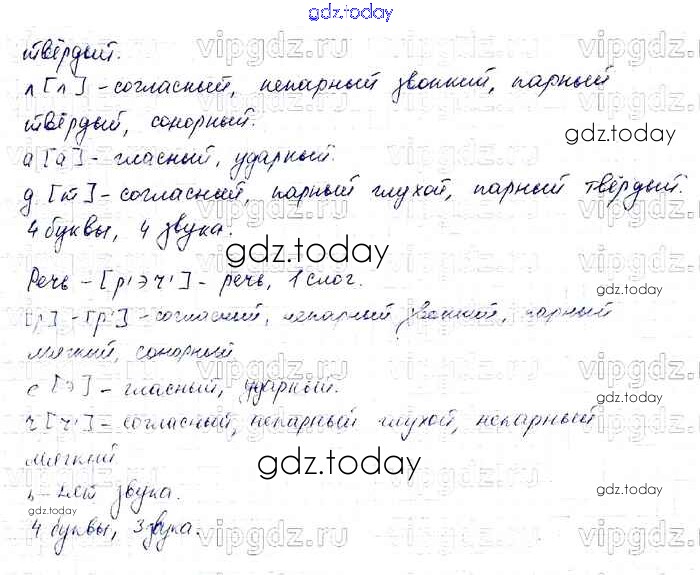 gdz.today
твёрдый.
л [л] - согласный, непарный звонкий, парный
твёрдый, сонорный.
а [а] - гласный, ударный.
д [т] - согласный, парный глухой, парный твёрдый.
4 буквы, 4 звука.
Речь - [р'эч'] - речь, 1 слог.
[р] - [р'] - согласный, непарный звонкий, парный
мягкий, сонорный
е [э] - гласный, ударный.
ч [ч'] - согласный, непарный глухой, непарный
мягкий
ь - нет звука.
4 буквы, 3 звука.